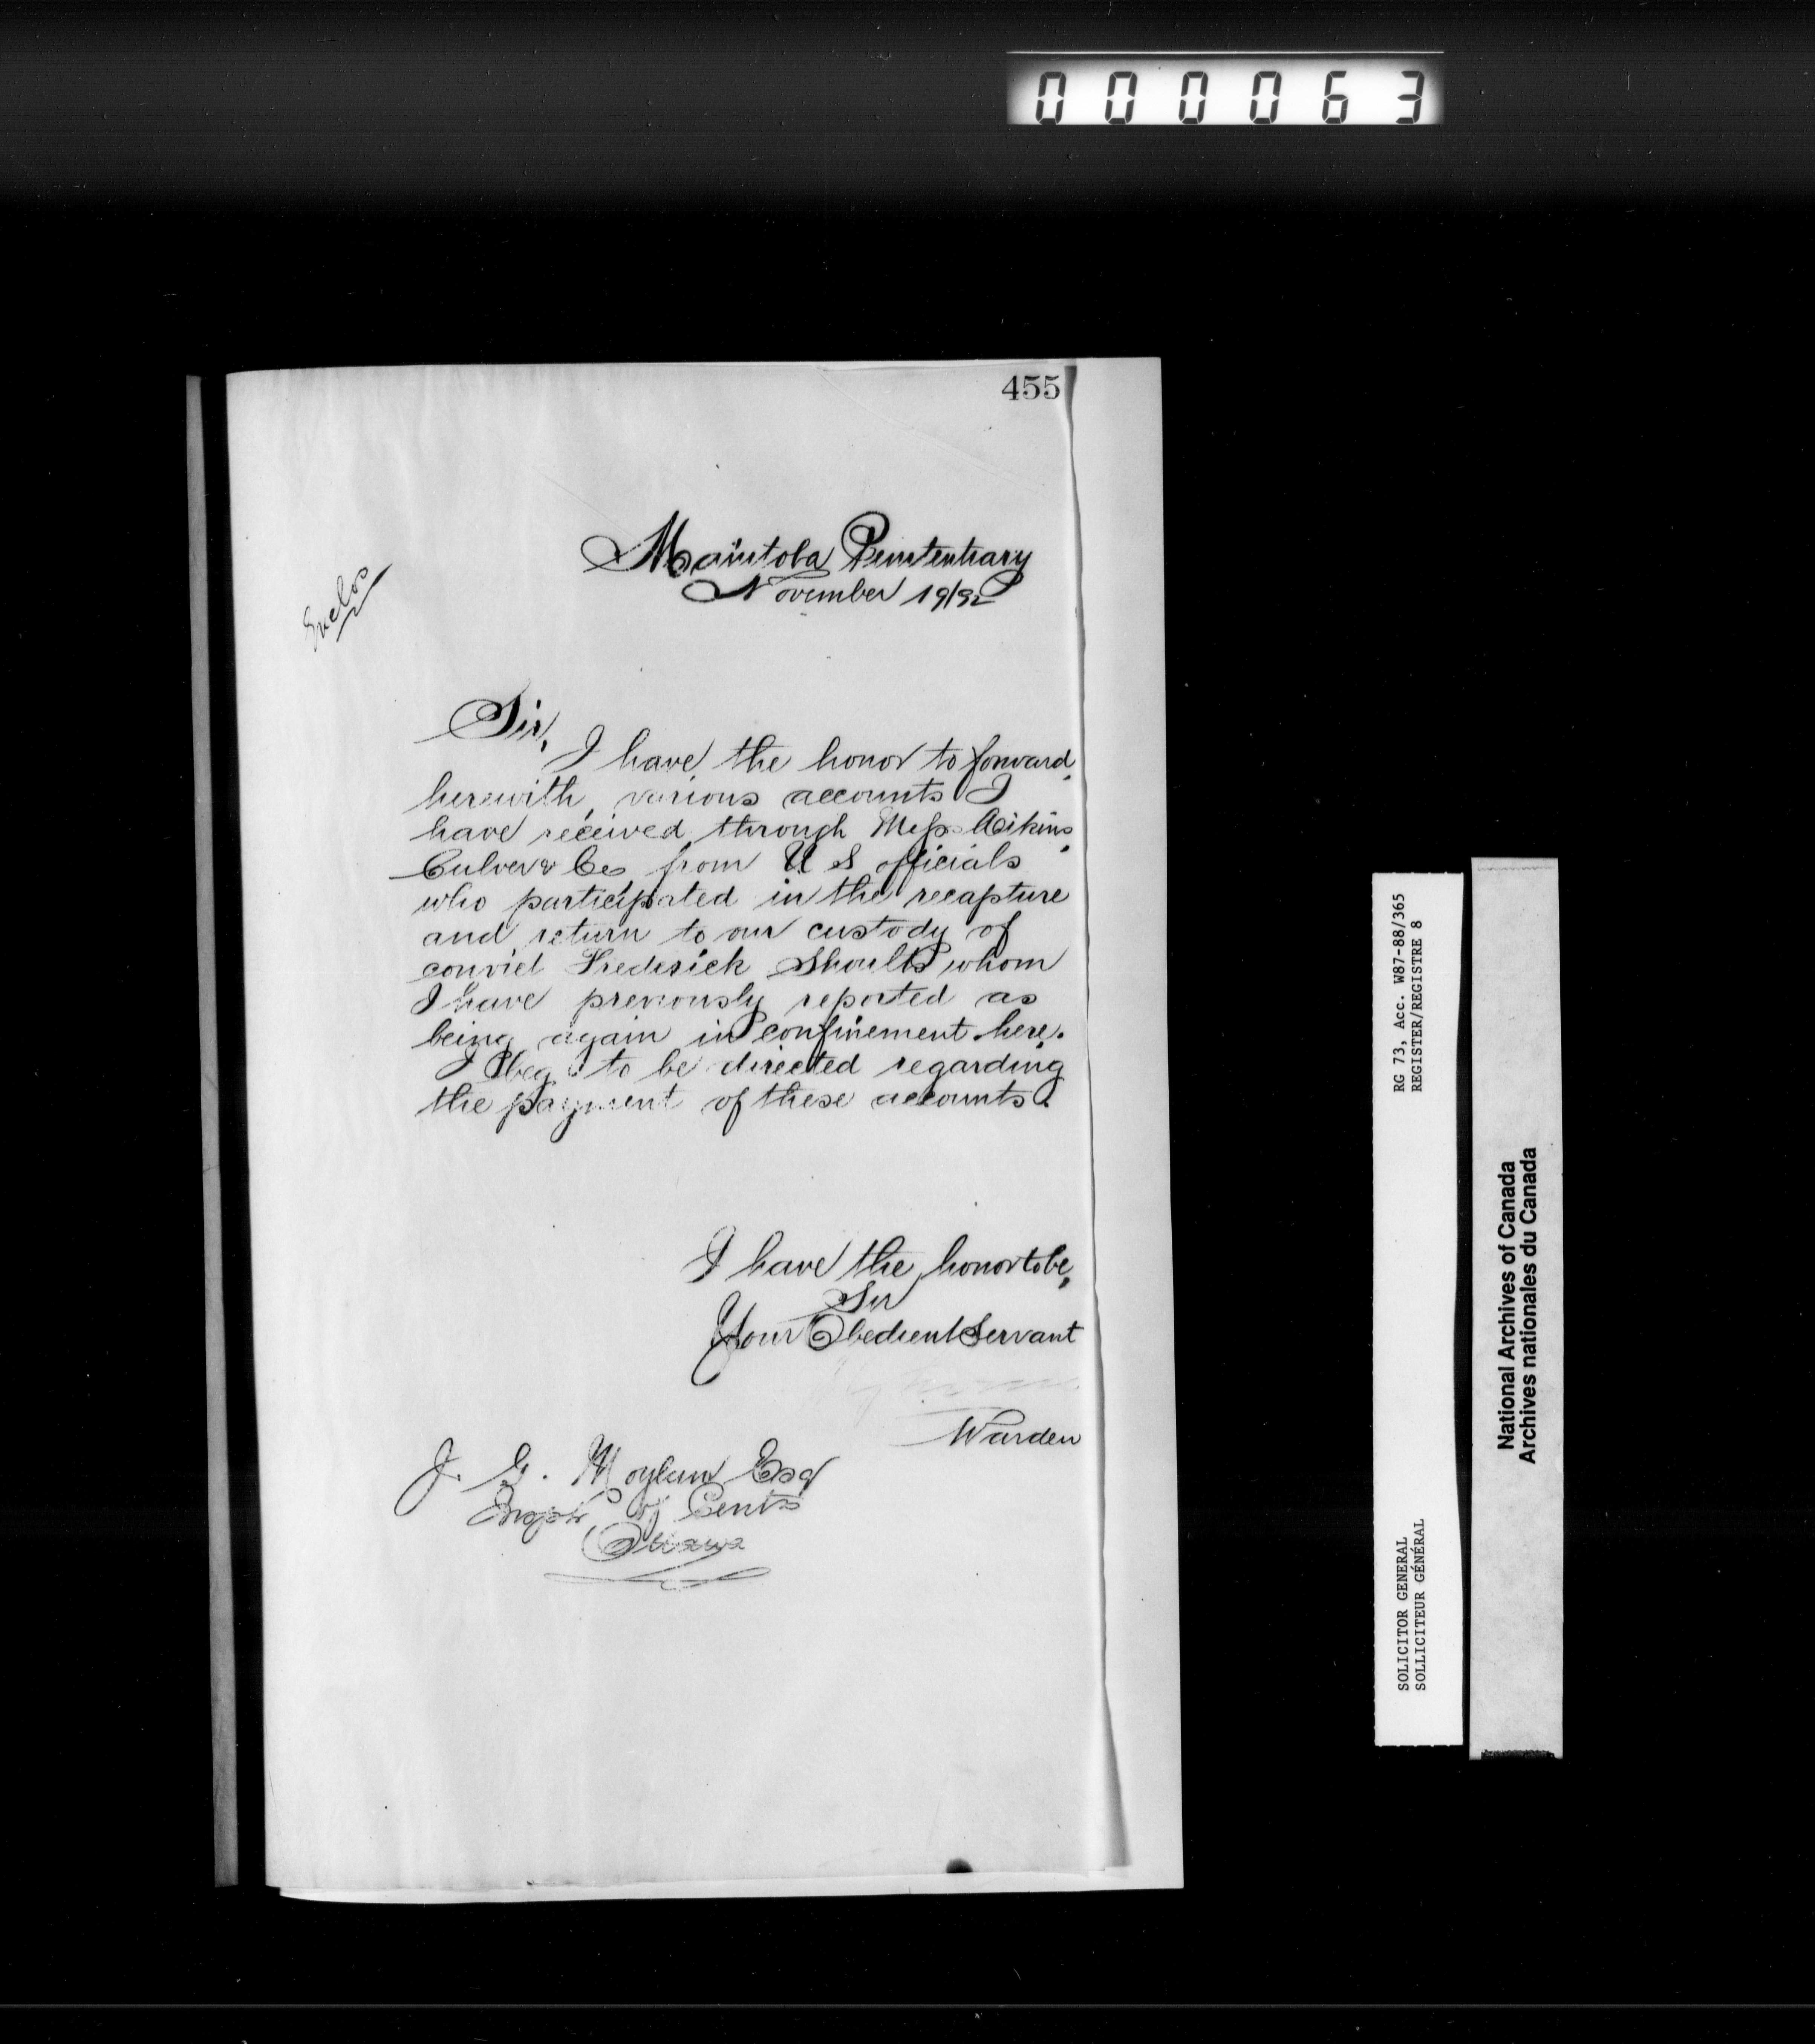 000063
455
Manitoba Penitentiary
November 19/92
Enclos
Sir,
I have the honor to forward
herewith various accounts I
have received through Mess Aikins
Culver & Co from U S officials
who participated in the recapture
and return to our custody of
convict Frederick Shoults whom
I have previously reported as
being again in confinement here.
I beg to be directed regarding
the payment of these accounts.
I have the honor to be,
Sir
Your Obedient Servant
Warden
J. G. Moylan Esq
Inspr of Penits
Ottawa
RG 73, Acc. W87-88/365
REGISTER/REGISTRE 8
SOLICITOR GENERAL
SOLLICITEUR GÉNÉRAL
National Archives of Canada
Archives nationales du Canada